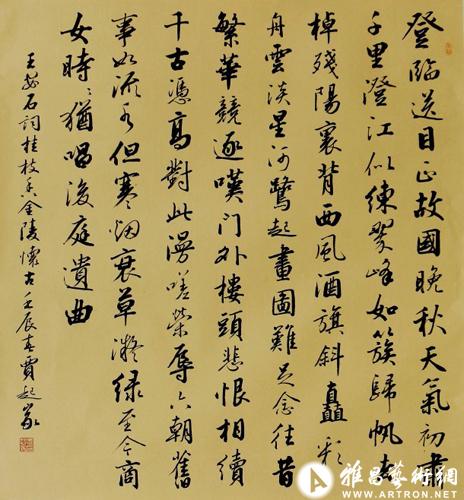 登臨送目正故國晚秋天氣初肅
千里澄江似練翠峰如簇歸帆去
棹殘陽裏背西風酒旗斜矗彩
舟雲淡星河鷺起畫圖難足念往昔
繁華競逐嘆門外樓頭悲恨相續
千古憑高對此漫嗟榮辱六朝舊
事如流水但寒烟衰草凝緑至今商
女時〻猶唱後庭遺曲
王安石詞桂枝香金陵懷古壬辰春賈起家
雅昌藝術網
WWW.ARTRON.NET